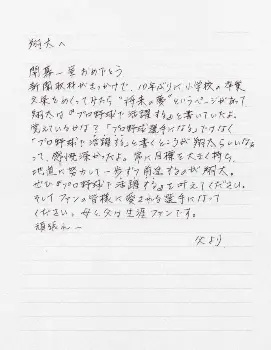 翔太へ
開幕一軍おめでとう
新聞取材がきっかけで、10年ぶりに小学校の卒業
文集をめくってみたら"将来の夢"というページがあって
翔太は『プロ野球で活躍する』と書いていたよ。
覚えているかな?「プロ野球選手になる」ではなく
「プロ野球で活躍する」と書くところが翔太らしいなぁ
って、感慨深かったよ。常に目標を大きく持ち、
地道に努力して一歩ずつ前進するのが翔太。
ぜひともプロ野球で活躍する』を叶えてください。
そしてファンの皆様に愛される選手になって
ください。母と父は生涯ファンです。
頑張れ〜
父より